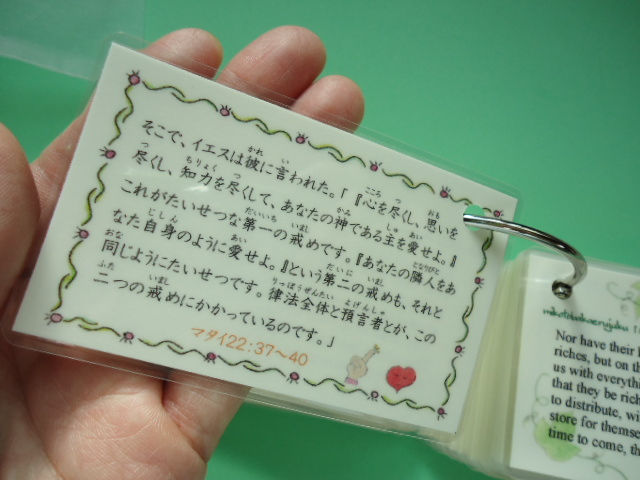 そこで、イエスは彼に言われた。「『心を尽くし、思いを
尽くし、知力を尽くして、あなたの神である主を愛せよ。』
これがたいせつな第一の戒めです。『あなたの隣人をあ
なた自身のように愛せよ。』という第二の戒めも、それと
同じようにたいせつです。律法全体と預言者とが、この
二つの戒めにかかっているのです。」
マタイ22:37〜40
Nor have their
riches, but on
us with everyth
that they be rich
to distribute, wi
store for themse
time to come, th